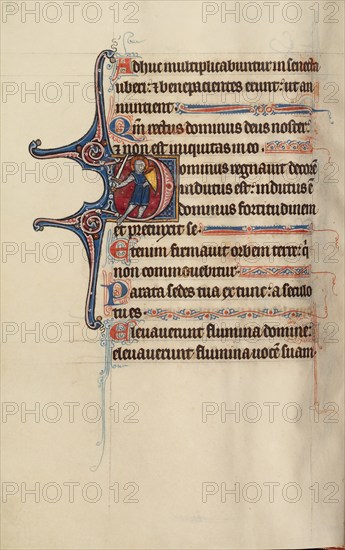 Adhuc multiplicabuntur in senecta
uberi: & bene pacientes erunt: ut an
nuntient
Qm rectus dominus deus noster:
& non est iniquitas in eo
Dominus regnavit decorem
indutus est: indutus est
dominus fortitudinem
et precinxit se
Etenim firmavit orbem terre: q
non commovebitur
Parata sedes tua ex tunc: a seculo
tu es
Elevaverunt flumina domine:
elevaverunt flumina vocem suam
PHOTO12